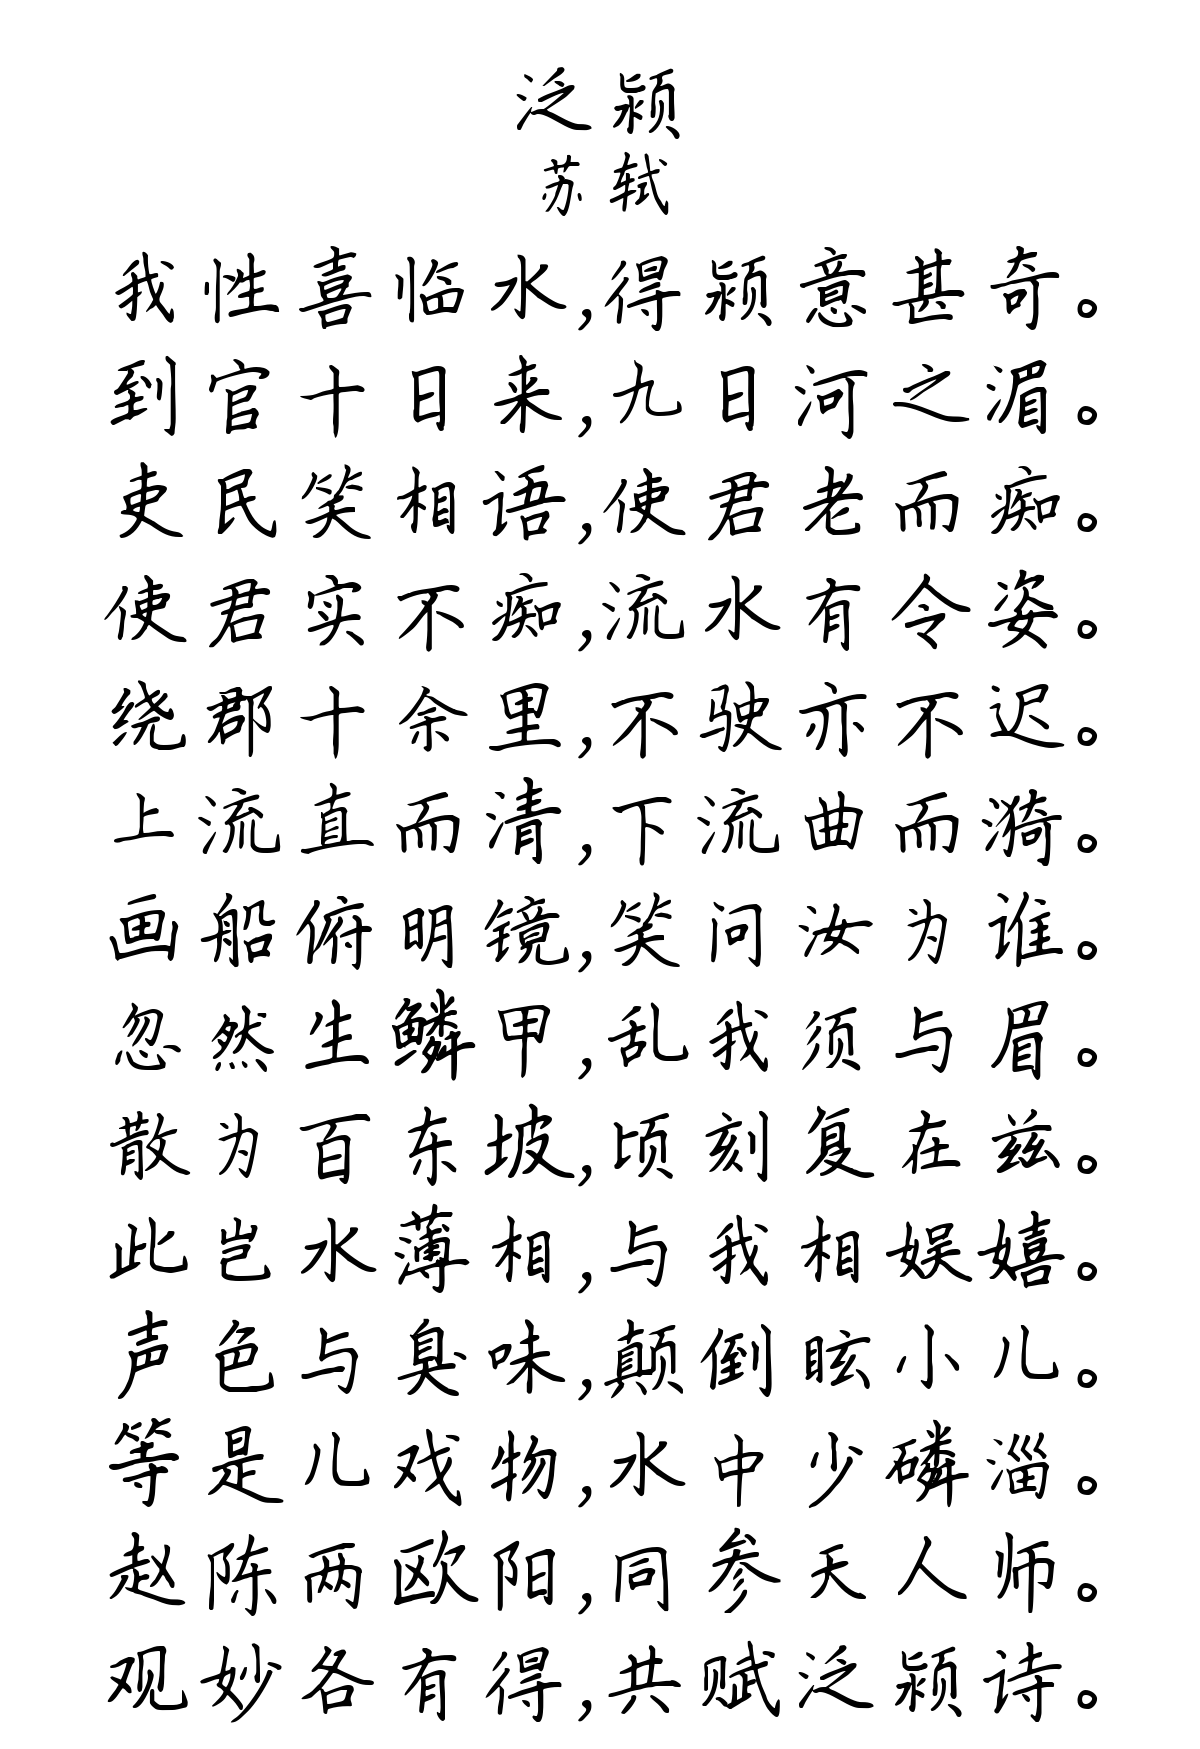 泛颍
苏轼
我性喜临水,得颍意甚奇。
到官十日来,九日河之湄。
吏民笑相语,使君老而痴。
使君实不痴,流水有令姿。
绕郡十余里,不驶亦不迟。
上流直而清,下流曲而漪。
画船俯明镜,笑问汝为谁。
忽然生鳞甲,乱我须与眉。
散为百东坡,顷刻复在兹。
此岂水薄相,与我相娱嬉。
声色与臭味,颠倒眩小儿。
等是儿戏物,水中少磷淄。
赵陈两欧阳,同参天人师。
观妙各有得,共赋泛颍诗。